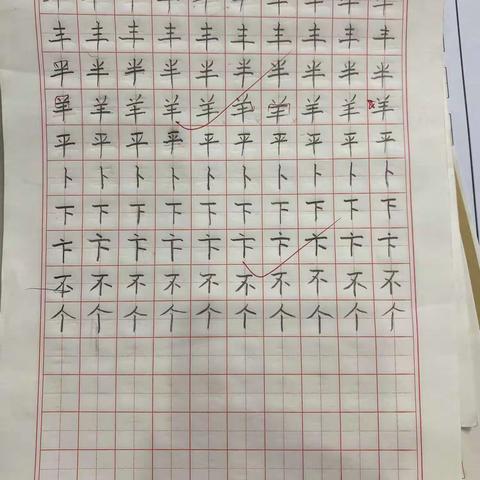 丰丰丰丰丰丰丰丰丰丰
半半半半半半半半半半
羊羊羊羊羊羊羊羊羊羊
平平平平平平平平平平
卜卜卜卜卜卜卜卜卜卜
下下下下下下下下下下
卞卞卞卞卞卞卞卞卞卞
不不不不不不不不不不
个个个个个个个个个个